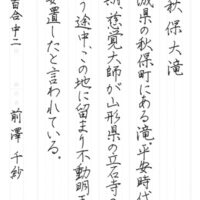 秋保大滝
城県の秋保町にある滝。平安時代
慈覚大師が山形県の立石寺
う途中、この地に留まり不動明王
安置したと言われている。
百合中二 前澤千紗